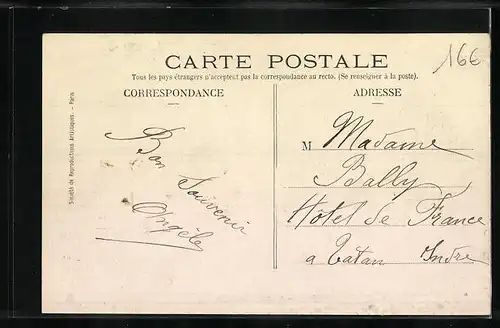 166
CARTE POSTALE
Tous les pays étrangers n'acceptent pas la correspondance au recto. (Se renseigner à la poste).
CORRESPONDANCE
ADRESSE
Société de Reproductions Artistiques. - Paris
Bon Souvenir
Angèle
M Madame
Bally
Hôtel de France
a Vatan Indre